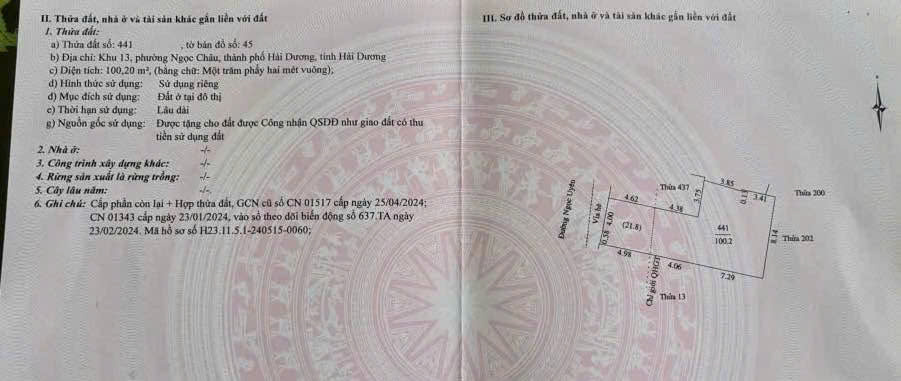 II. Thửa đất, nhà ở và tài sản khác gắn liền với đất
1. Thửa đất:
a) Thửa đất số: 441 , tờ bản đồ số: 45
b) Địa chỉ: Khu 13, phường Ngọc Châu, thành phố Hải Dương, tỉnh Hải Dương
c) Diện tích: 100,20 m², (bằng chữ: Một trăm phẩy hai mét vuông);
d) Hình thức sử dụng: Sử dụng riêng
đ) Mục đích sử dụng: Đất ở tại đô thị
e) Thời hạn sử dụng: Lâu dài
g) Nguồn gốc sử dụng: Được tặng cho đất được Công nhận QSDĐ như giao đất có thu
tiền sử dụng đất
2. Nhà ở: -/-
3. Công trình xây dựng khác: -/-
4. Rừng sản xuất là rừng trồng: -/-
5. Cây lâu năm: -/-.
6. Ghi chú: Cấp phần còn lại + Hợp thửa đất, GCN cũ số CN 01517 cấp ngày 25/04/2024;
CN 01343 cấp ngày 23/01/2024, vào sổ theo dõi biến động số 637.TA ngày
23/02/2024. Mã hồ sơ số H23.11.5.1-240515-0060;
III. Sơ đồ thửa đất, nhà ở và tài sản khác gắn liền với đất
Thửa 437
3.85
Thửa 200
3.75
0.13
3.41
4.62
4.38
Đường Ngọc Uyên
Vỉa hè
4.00
0.58
(21.8)
441
100.2
8.14
Thửa 202
4.98
4.06
7.29
Chỉ giới QHGT
Thửa 13